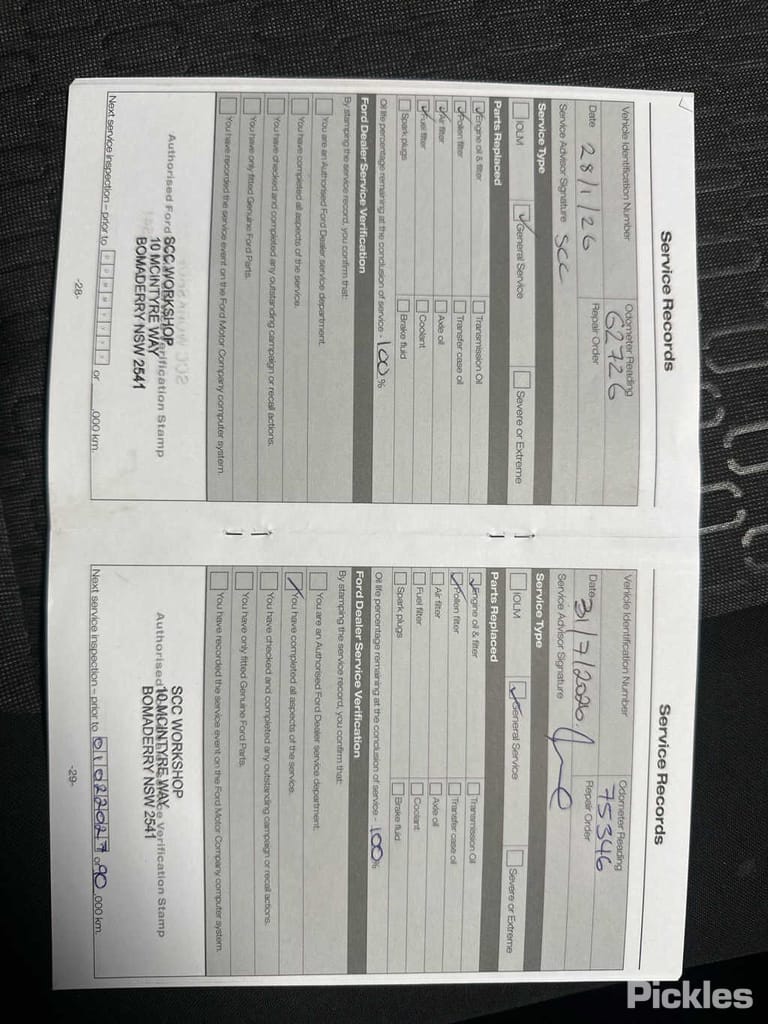 Service Records
Vehicle Identification Number
Odometer Reading
62726
Date 28/1/26
Repair Order
Service Advisor Signature SCC
Service Type
IOLM
General Service
Severe or Extreme
Parts Replaced
Engine oil & filter
Transmission Oil
Pollen filter
Transfer case oil
Air filter
Axle oil
Fuel filter
Coolant
Spark plugs
Brake fluid
Oil life percentage remaining at the conclusion of service - 100 %
Ford Dealer Service Verification
By stamping the service record, you confirm that:
You are an Authorised Ford Dealer service department.
You have completed all aspects of the service.
You have checked and completed any outstanding campaign or recall actions.
You have only fitted Genuine Ford Parts.
You have recorded the service event on the Ford Motor Company computer system.
Authorised Ford Verification Stamp
SCC WORKSHOP
10 MCINTYRE WAY
BOMADERRY NSW 2541
Next service inspection – prior to D D M M Y Y Y Y or ,000 km.
-28-
Service Records
Vehicle Identification Number
Odometer Reading
75346
Date 31/7/2026.
Repair Order
Service Advisor Signature
Service Type
IOLM
General Service
Severe or Extreme
Parts Replaced
Engine oil & filter
Transmission Oil
Pollen filter
Transfer case oil
Air filter
Axle oil
Fuel filter
Coolant
Spark plugs
Brake fluid
Oil life percentage remaining at the conclusion of service - 100%
Ford Dealer Service Verification
By stamping the service record, you confirm that:
You are an Authorised Ford Dealer service department.
You have completed all aspects of the service.
You have checked and completed any outstanding campaign or recall actions.
You have only fitted Genuine Ford Parts.
You have recorded the service event on the Ford Motor Company computer system.
SCC WORKSHOP
Authorised Verification Stamp
10 MCINTYRE WAY
BOMADERRY NSW 2541
Next service inspection – prior to 01022027 or 90,000 km.
-29-
Pickles